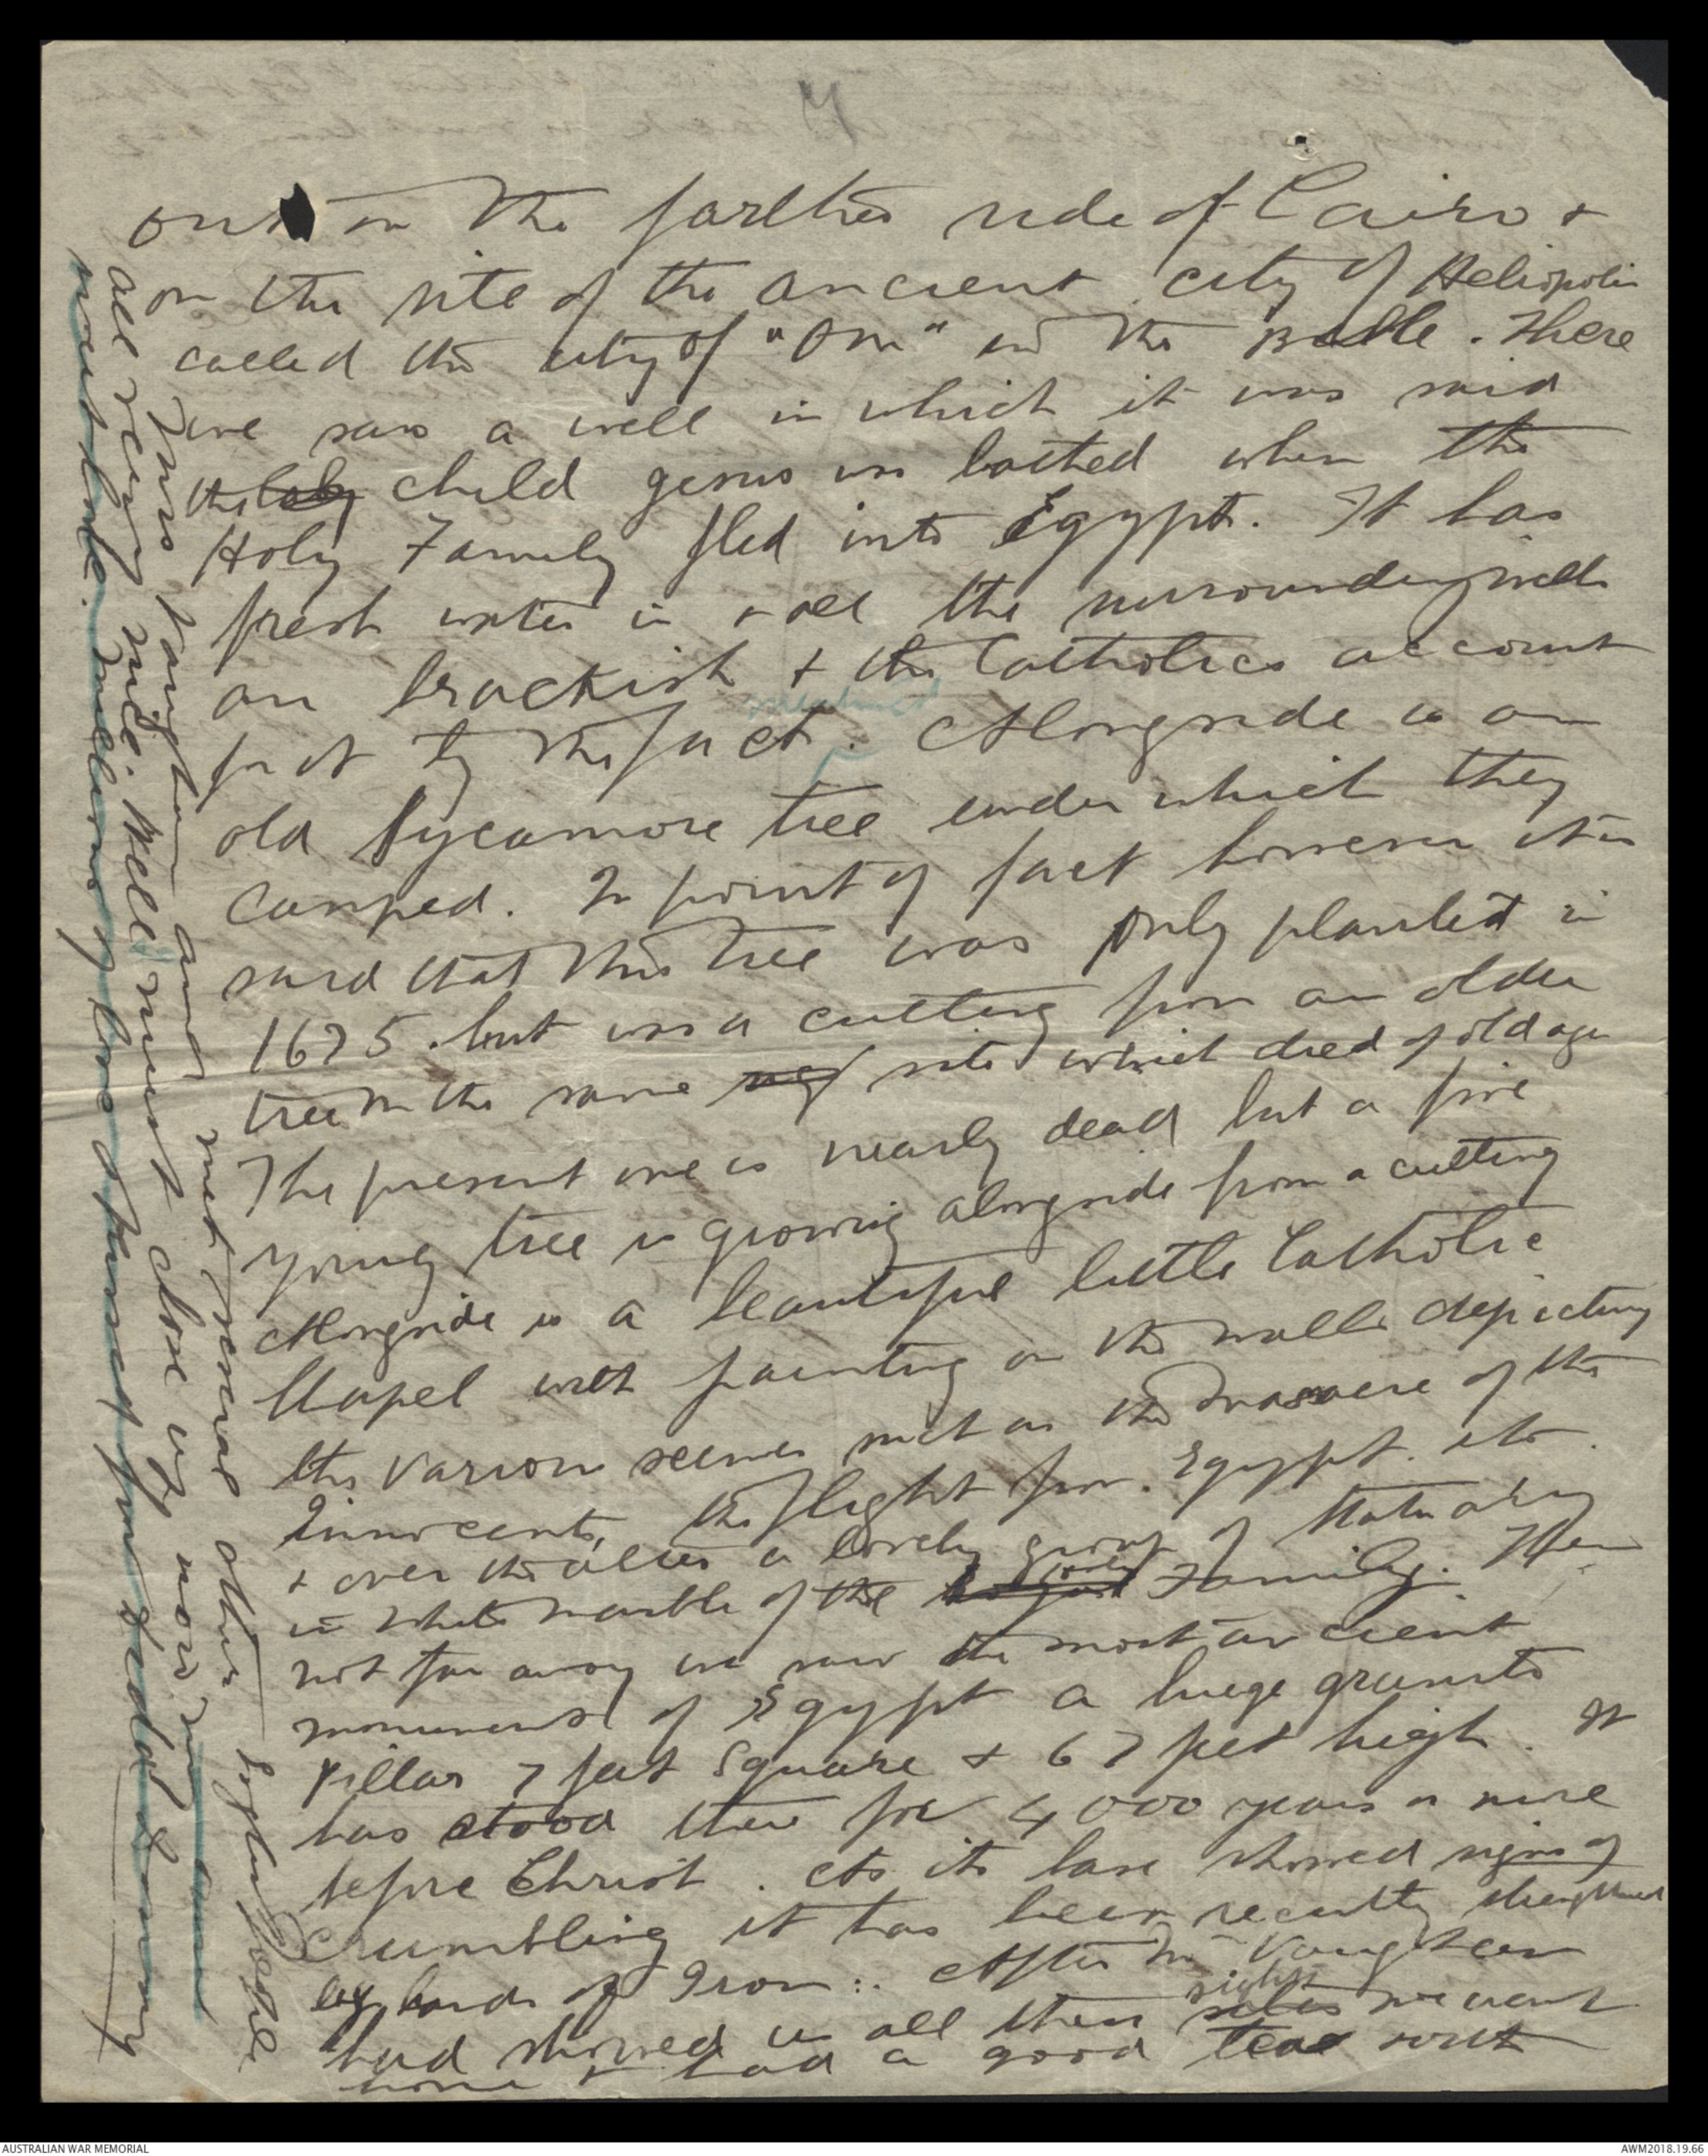 4
out on the farther side of Cairo &
on the site of the ancient city of Heliopolis
called the city of "On" in the Bible. There
we saw a well in which it was said
the baby child Jesus was bathed when the
Holy Family fled into Egypt. It has
fresh water in & all the surrounding wells
are brackish & the Catholics account
for it by this fact. Alongside is an
old Sycamore tree under which they
camped. In point of fact however it is
said that this tree was only planted in
1675. but was a cutting from an older
tree on the same site which died of old age
The present one is nearly dead but a fine
young tree is growing alongside from a cutting
Alongside is a beautiful little Catholic
Chapel with painting on the walls depicting
the various scenes such as the Massacre of the
Innocents, the flight from Egypt. etc.
& over the altar a lovely group of Statuary
in white marble of the Holy Family. Then
not far away we saw the most ancient
monument of Egypt a huge granite
Pillar 7 feet Square & 67 feet high. It
has stood there for 4,000 years or more
before Christ. As its base showed signs of
crumbling it has been recently strengthened
by bands of Iron:. After Mrs Vaughan
had showed us all these sights we went
home & had a good tea with
Mrs Vaughan and met several other English people
all very nice. Well must close up now my dear
must time. Melbourne my love & kisses for